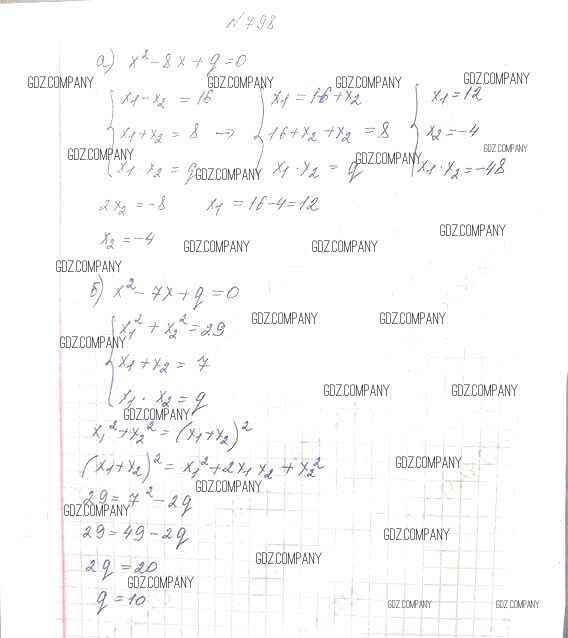 №798
а) x² - 8x + q = 0
GDZ.COMPANY GDZ.COMPANY GDZ.COMPANY GDZ.COMPANY
{ x1 - x2 = 16 { x1 = 16 + x2 { x1 = 12
x1 + x2 = 8 → 16 + x2 + x2 = 8 x2 = -4
GDZ.COMPANY GDZ.COMPANY GDZ.COMPANY
x1 · x2 = q x1 · x2 = q x1 · x2 = -48
GDZ.COMPANY
2x2 = -8 x1 = 16 - 4 = 12
GDZ.COMPANY
x2 = -4 GDZ.COMPANY GDZ.COMPANY
GDZ.COMPANY
б) x² - 7x + q = 0
{ x1² + x2² = 29 GDZ.COMPANY GDZ.COMPANY
GDZ.COMPANY
x1 + x2 = 7
x1 · x2 = q GDZ.COMPANY GDZ.COMPANY
GDZ.COMPANY
x1² + x2² = (x1 + x2)²
(x1 + x2)² = x1² + 2x1 x2 + x2² GDZ.COMPANY
GDZ.COMPANY
29 = 7² - 2q
GDZ.COMPANY
29 = 49 - 2q GDZ.COMPANY
2q = 20 GDZ.COMPANY
GDZ.COMPANY
q = 10 GDZ.COMPANY GDZ.COMPANY